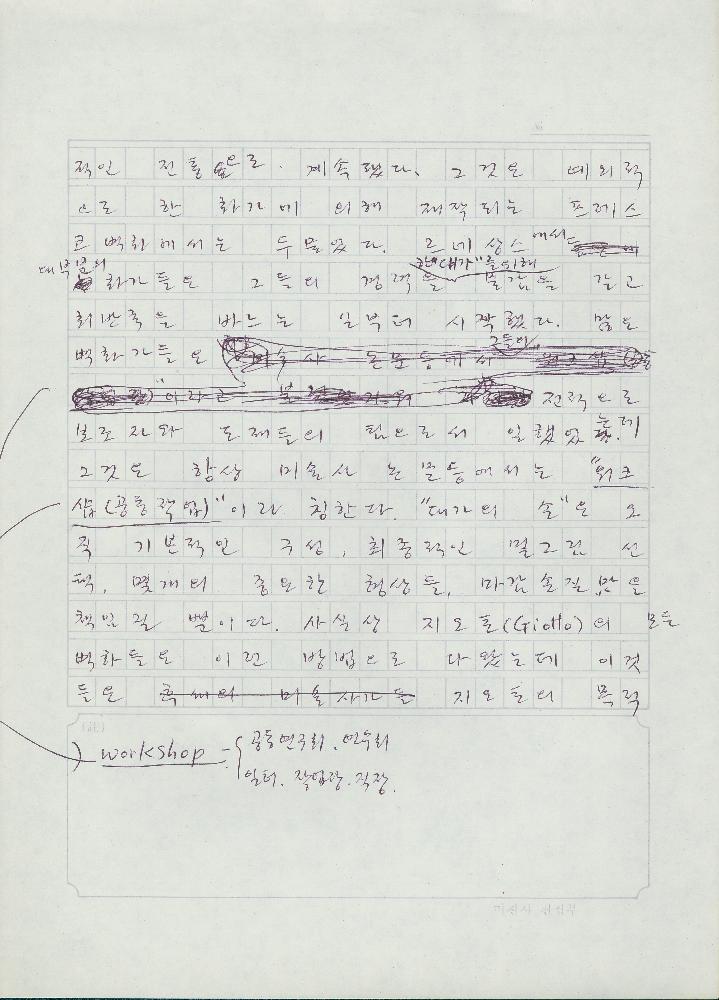 적인 전통으로 계속됐다. 그것은 예외적
으로 한 화가에 의해 제작되는 프레스
코 벽화에서는 두물었다. 르네상스에서는
대부분의 화가들은 그들의 경력을 "대가"를 위해 물감을 갈고
회반죽을 바느는 일부터 시작했다. 많은
벽화가들은
전적으로
보조자와 도제들의 팀으로서 일했었는데
그것은 항상 미술사 논문등에서는 "워크
샵(공동작업)"이라 칭한다. "대가의 손"은 오
직 기본적인 구성, 최종적인 밑그림 선
택, 몇개의 중요한 형상들, 마감손질만을
책임질 뿐이다. 사실상 지오토(Giotto)의 모든
벽화들은 이런 방법으로 다 왔는데 이것
들은 미술사가들 지오토의 목적
(註)
) workshop - { 공동연구회. 연수회
일터. 작업장. 직장.